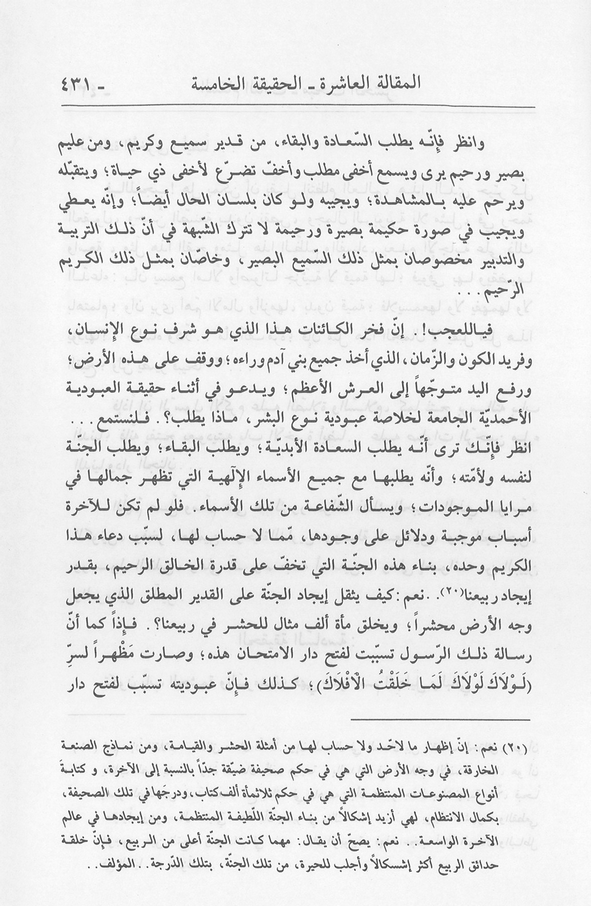 المقالة العاشرة - الحقيقة الخامسة - ٤٣١
وانظر فإنّه يطلب السّعادة والبقاء، من قدير سميع وكريم، ومن عليم
بصير ورحيم يرى ويسمع أخفى مطلب وأخفّ تضرّع لأخفى ذي حياة؛ ويتقبّله
ويرحم عليه بالمشاهدة؛ ويجيبه ولو كان بلسان الحال أيضاً؛ وإنّه يعطي
ويجيب في صورة حكيمة بصيرة ورحيمة لا تترك الشّبهة في أنّ ذلك التربية
والتدبير مخصوصان بمثل ذلك السّميع البصير، وخاصّان بمثل ذلك الكريم
الرّحيم...
فياللعجب!. إنّ فخر الكائنات هذا الذي هو شرف نوع الإنسان،
وفريد الكون والزّمان، الذي أخذ جميع بني آدم وراءه؛ ووقف على هذه الأرض؛
ورفع اليد متوجّهاً إلى العرش الأعظم؛ ويدعو في أثناء حقيقة العبودية
الأحمديّة الجامعة لخلاصة عبودية نوع البشر، ماذا يطلب؟. فلنستمع...
انظر فإنّك ترى أنّه يطلب السعادة الأبديّة؛ ويطلب البقاء؛ ويطلب الجنّة
لنفسه ولأمّته؛ وأنّه يطلبها مع جميع الأسماء الإلٓهية التي تظهر جمالها في
مرايا الموجودات؛ ويسأل الشّفاعة من تلك الأسماء. فلو لم تكن للآخرة
أسباب موجبة ودلائل على وجودها، ممّا لا حساب لها، لسبّب دعاء هذا
الكريم وحده، بناء هذه الجنّة التي تخفّ على قدرة الخالق الرحيم، بقدر
إيجاد ربيعنا(٢٠)..نعم:كيف يثقل إيجاد الجنّة على القدير المطلق الذي يجعل
وجه الأرض محشراً؛ ويخلق مأة ألف مثال للحشر في ربيعنا؟. فإذاً كما أنّ
رسالة ذلك الرّسول تسبّبت لفتح دار الامتحان هذه؛ وصارت مَظْهراً لسرِّ
(لَوْلَاكَ لَوْلَاكَ لَمَا خَلَقْتُ الْاَفْلَاكَ)؛ كذلك فإنّ عبوديته تسبّب لفتح دار
(٢٠) نعم: إنّ إظهار ما لاحّد ولا حساب لها من أمثلة الحشر والقيامة، ومن نماذج الصنعة
الخارقة، في وجه الأرض التي هي في حكم صحيفة ضيّقة جدّاً بالنسبة إلى الآخرة، و كتابة
أنواع المصنوعات المنتظمة التي هي في حكم ثلاثمأة ألف كتاب، ودرجَها في تلك الصحيفة،
بكمال الانتظام، لهي أزيد إشكالاً من بناء الجنّة اللّطيفة المنتظمة، ومن إيجادها في عالم
الآخرة الواسعة.. نعم: يصحّ أن يقال: مهما كانت الجنّة أعلى من الربيع، فإنّ خلقة
حدائق الربيع أكثر إشسكالاً وأجلب للحيرة، من تلك الجنّة، بتلك الدّرجة..المؤلف..